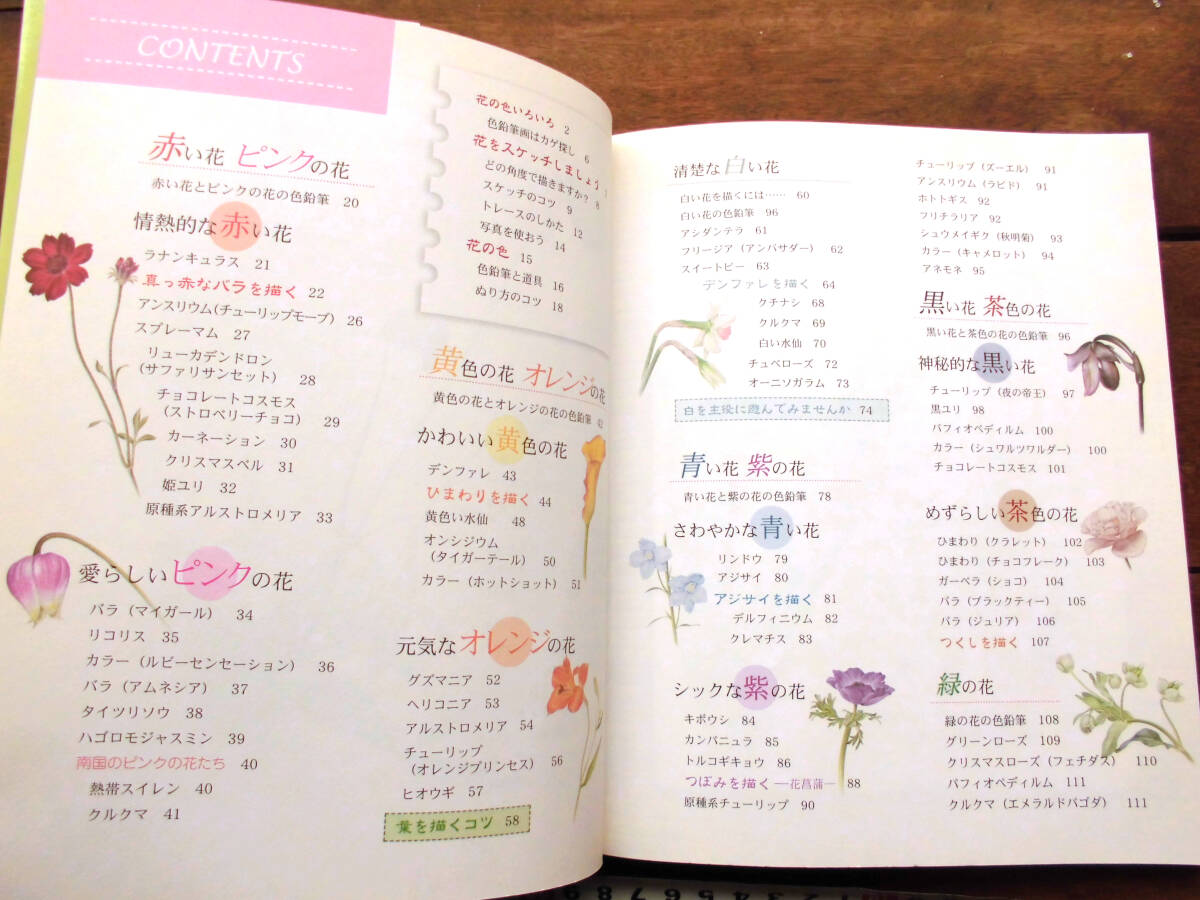 CONTENTS
花の色いろいろ 2
色鉛筆画はカゲ探し 6
花をスケッチしましょう
どの角度で描きますか? 8
スケッチのコツ 9
トレースのしかた 12
写真を使おう 14
花の色 15
色鉛筆と道具 16
ぬり方のコツ 18
赤い花 ピンクの花
赤い花とピンクの花の色鉛筆 20
情熱的な赤い花
ラナンキュラス 21
真っ赤なバラを描く 22
アンスリウム(チューリップモーブ) 26
スプレーマム 27
リューカデンドロン
(サファリサンセット) 28
チョコレートコスモス
(ストロベリーチョコ) 29
カーネーション 30
クリスマスベル 31
姫ユリ 32
原種系アルストロメリア 33
愛らしいピンクの花
バラ(マイガール) 34
リコリス 35
カラー(ルビーセンセーション) 36
バラ(アムネシア) 37
タイツリソウ 38
ハゴロモジャスミン 39
南国のピンクの花たち 40
熱帯スイレン 40
クルクマ 41
黄色の花 オレンジの花
黄色の花とオレンジの花の色鉛筆 42
かわいい黄色の花
デンファレ 43
ひまわりを描く 44
黄色い水仙 48
オンシジウム
(タイガーテール) 50
カラー(ホットショット) 51
元気なオレンジの花
グズマニア 52
ヘリコニア 53
アルストロメリア 54
チューリップ
(オレンジプリンセス) 56
ヒオウギ 57
葉を描くコツ 58
清楚な白い花
白い花を描くには…… 60
白い花の色鉛筆 96
アシダンテラ 61
フリージア(アンバサダー) 62
スイートピー 63
デンファレを描く 64
クチナシ 68
クルクマ 69
白い水仙 70
チュベローズ 72
オーニソガラム 73
白を主役に遊んでみませんか 74
青い花 紫の花
青い花と紫の花の色鉛筆 78
さわやかな青い花
リンドウ 79
アジサイ 80
アジサイを描く 81
デルフィニウム 82
クレマチス 83
シックな紫の花
キボウシ 84
カンパニュラ 85
トルコギキョウ 86
つぼみを描く―花菖蒲― 88
原種系チューリップ 90
チューリップ(ズーエル) 91
アンスリウム(ラピド) 91
ホトトギス 92
フリチラリア 92
シュウメイギク(秋明菊) 93
カラー(キャメロット) 94
アネモネ 95
黒い花 茶色の花
黒い花と茶色の花の色鉛筆 96
神秘的な黒い花
チューリップ(夜の帝王) 97
黒ユリ 98
パフィオペディルム 100
カラー(シュワルツワルダー) 100
チョコレートコスモス 101
めずらしい茶色の花
ひまわり(クラレット) 102
ひまわり(チョコフレーク) 103
ガーベラ(ショコ) 104
バラ(ブラックティー) 105
バラ(ジュリア) 106
つくしを描く 107
緑の花
緑の花の色鉛筆 108
グリーンローズ 109
クリスマスローズ(フェチダス) 110
パフィオペディルム 111
クルクマ(エメラルドパゴダ) 111